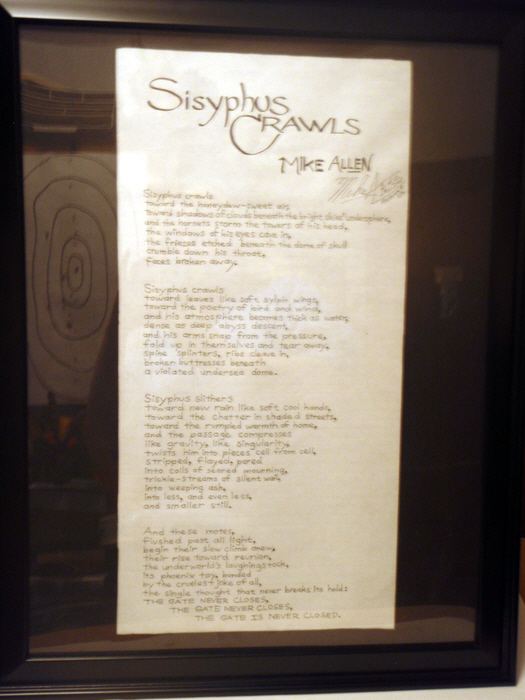 Sisyphus
Crawls
Mike Allen
Sisyphus crawls
toward the honeydew-sweet air,
toward shadows of clouds beneath the bright
and the hornets storm the towers of his head,
the windows of his eyes cave in,
the friezes etched beneath the dome of skull
crumble down his throat,
faces broken away.
Sisyphus crawls
toward leaves like soft sylph wings,
toward the poetry of bird and wind,
and his atmosphere becomes thick as water,
dense as deep abyss descent,
and his arms snap from the pressure,
fold up in themselves and tear away,
spine splinters, ribs cleave in,
broken buttresses beneath
a violated undersea dome.
Sisyphus slithers
toward new rain like soft cool hands,
toward the chatter in shaded streets,
toward the rumpled warmth of home,
and the passage compresses
like gravity, like singularity,
twists him into pieces cell from cell,
stripped, flayed, pared
into coils of seared mourning,
trickle-streams of silent wail,
into weeping ash,
into less, and even less,
and smaller still.
And these motes,
flushed past all light,
begin their slow climb anew,
their rise toward reunion,
the underworld's laughingstock,
its phoenix toy, bonded
by the cruelest joke of all,
the single thought that never breaks its hold:
THE GATE NEVER CLOSES,
THE GATE NEVER CLOSES,
THE GATE IS NEVER CLOSED.